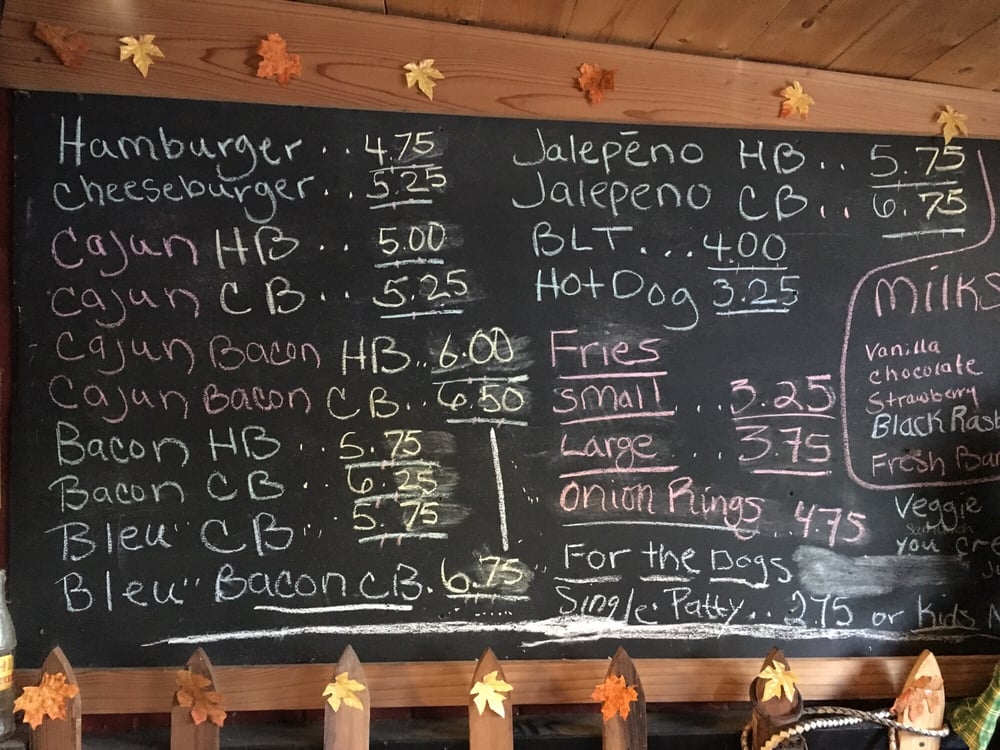 Hamburger .. 4.75
cheeseburger.. 5.25
Cajun HB .. 5.00
Cajun CB .. 5.25
Cajun Bacon HB.. 6.00
Cajun Bacon CB.. 6.50
Bacon HB .. 5.75
Bacon CB .. 6.25
Bleu" CB .. 5.75
Bleu" Bacon CB. 6.75
Jalepēno HB.. 5.75
Jalepeno CB.. 6.75
BLT... 4.00
Hot Dog 3.25
Fries
Small ... 3.25
Large ... 3.75
Onion Rings 4.75
For the Dogs
Single Patty.. 2.75 or Kids
Milks
Vanilla
chocolate
Strawberry
Black Rasb
Fresh Ban
Veggie
you cre